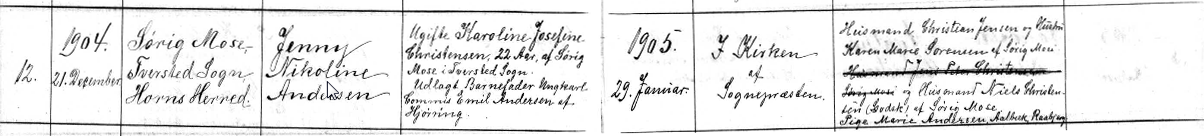 12.
1904.
21. December.
Sørig Mose,
Tversted Sogn,
Horns Herred.
Jenny
Nikoline
Andersen
Ugifte Karoline Josefine
Christensen, 22 Aar, af Sørig
Mose i Tversted Sogn.
Udlagt Barnefader Ungkarl
Commis Emil Andersen af
Hjørring.
1905.
29. Januar.
I Kirken
af
Sognepræsten.
Husmand Christian Jensen og Hustru
Karen Marie Sørensen af Sørig Mose
Husmand Jens Peter Christensen
Sørig Mose og Husmand Niels Christen-
sen (Godsk) af Sørig Mose
Pige Marie Andersen, Aalbæk, Raabjerg